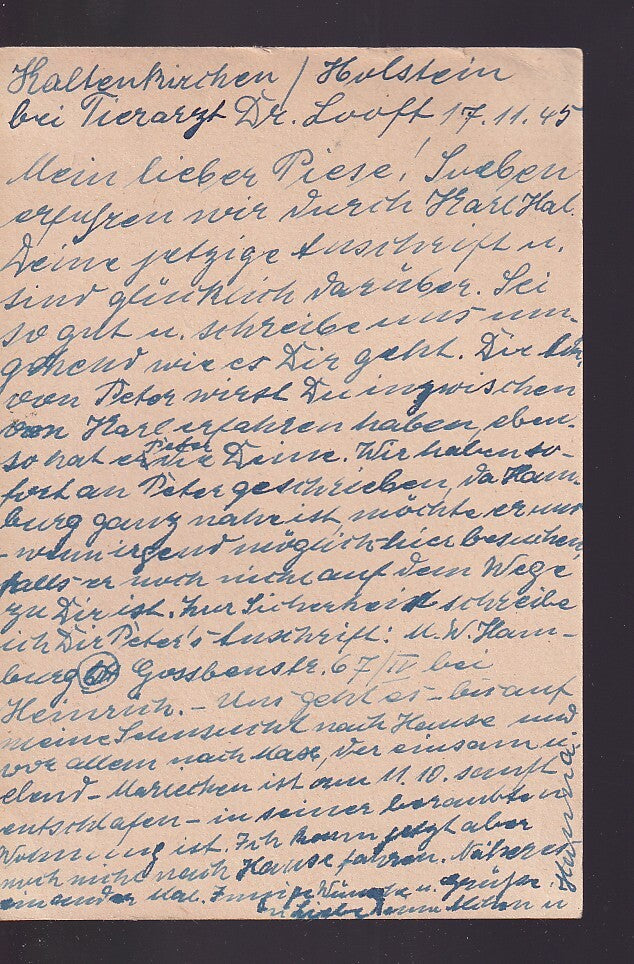 Kaltenkirchen / Holstein
bei Tierarzt Dr. Looft 17.11.45
Mein lieber Piese! Soeben
erfuhren wir durch Karl Hal.
Deine jetzige Anschrift u.
sind glücklich darüber. Sei
so gut u. schreibe uns um-
gehend wie es Dir geht. Die
von Peter wirst Du inzwischen
von Karl erfahren haben, eben-
so hat er Peter die Deine. Wir haben so-
fort an Peter geschrieben, da Ham-
burg ganz nahe ist, möchte er uns
- wenn irgend möglich - hier besuchen,
falls er noch nicht auf dem Wege
zu Dir ist. Zur Sicherheit schreibe
ich Dir Peter's Anschrift: U. W. Ham-
burg Gossbenstr. 67/IV bei
Heinrich. - Uns geht es - bis auf
meine Sehnsucht nach Hause und
vor allem nach Max, der einsam u.
elend - Mariechen ist am 11.10. sanft
entschlafen - in seiner beraubten
Wohnung ist. Ich kann jetzt aber
noch nicht nach Hause fahren. Näheres
ein ander Mal. Innige Wünsche u. Grüße
in Liebe Deine u